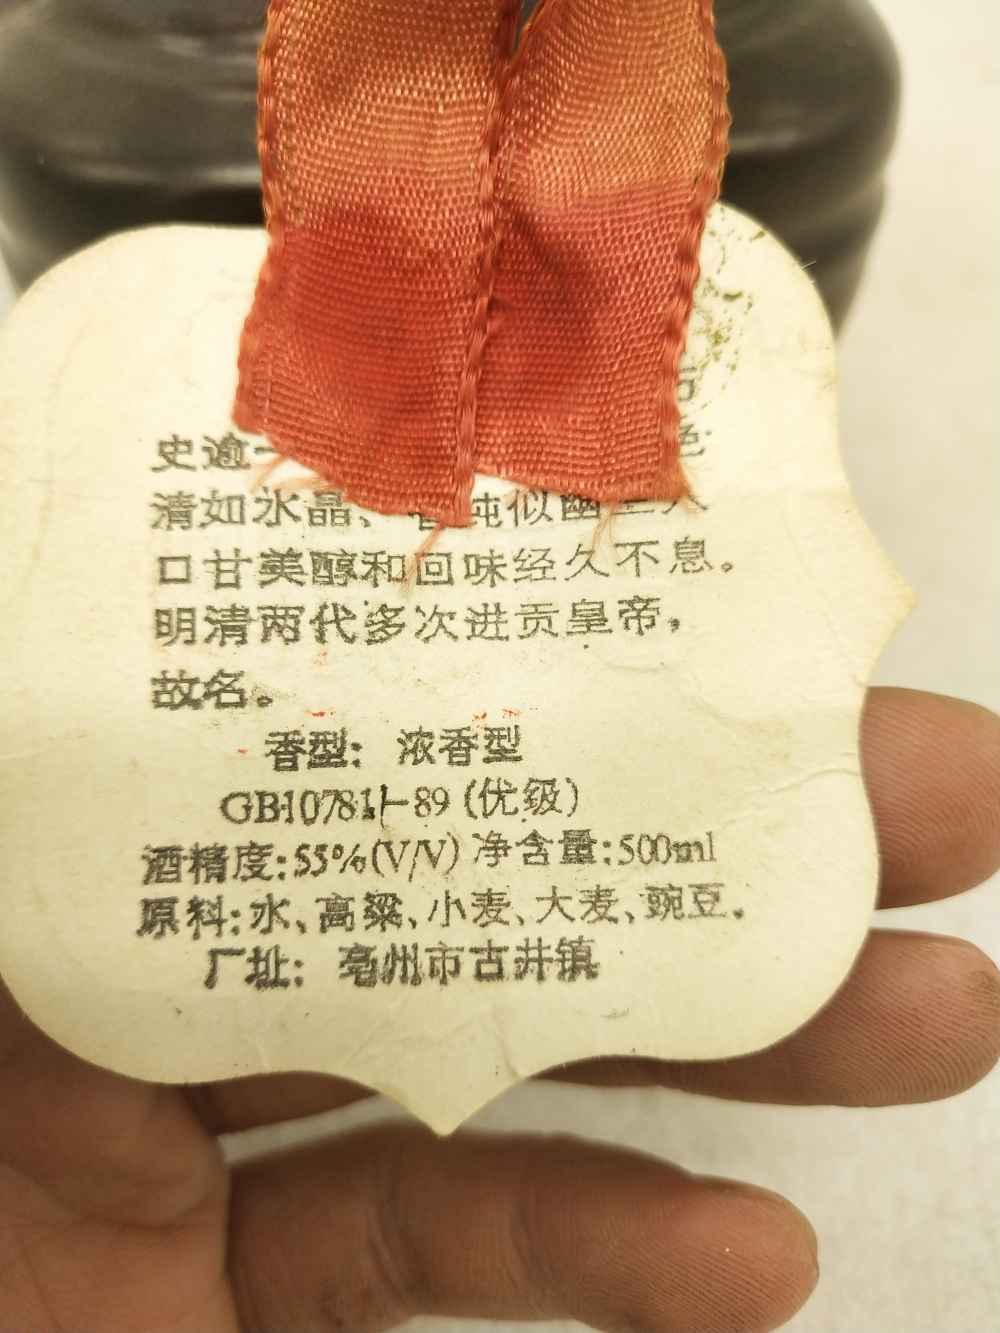 史逾
清如水晶、香纯似幽兰入
口甘美醇和回味经久不息。
明清两代多次进贡皇帝，
故名。
香型：浓香型
GB10781.1-89(优级)
酒精度:55%(V/V) 净含量:500ml
原料:水、高粱、小麦、大麦、豌豆。
厂址：亳州市古井镇